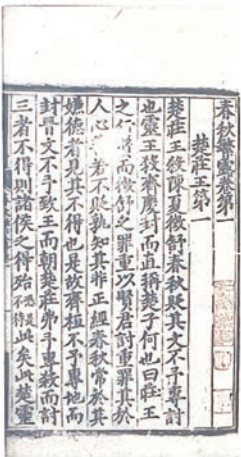 春秋繁露卷第一
楚莊王第一
楚莊王殺陳夏徵舒春秋貶其文不予專討
也靈王殺齊慶封而直稱楚子何也曰莊王
之行賢而徵舒之罪重以賢君討重罪其於
人心善若不貶孰知其非正經春秋常於其
嫌得者見其不得也是故齊桓不予專地而
封晉文不予致王而朝楚莊弗予專殺而討
三者不得則諸侯之得殆恐是待不此矣此楚靈